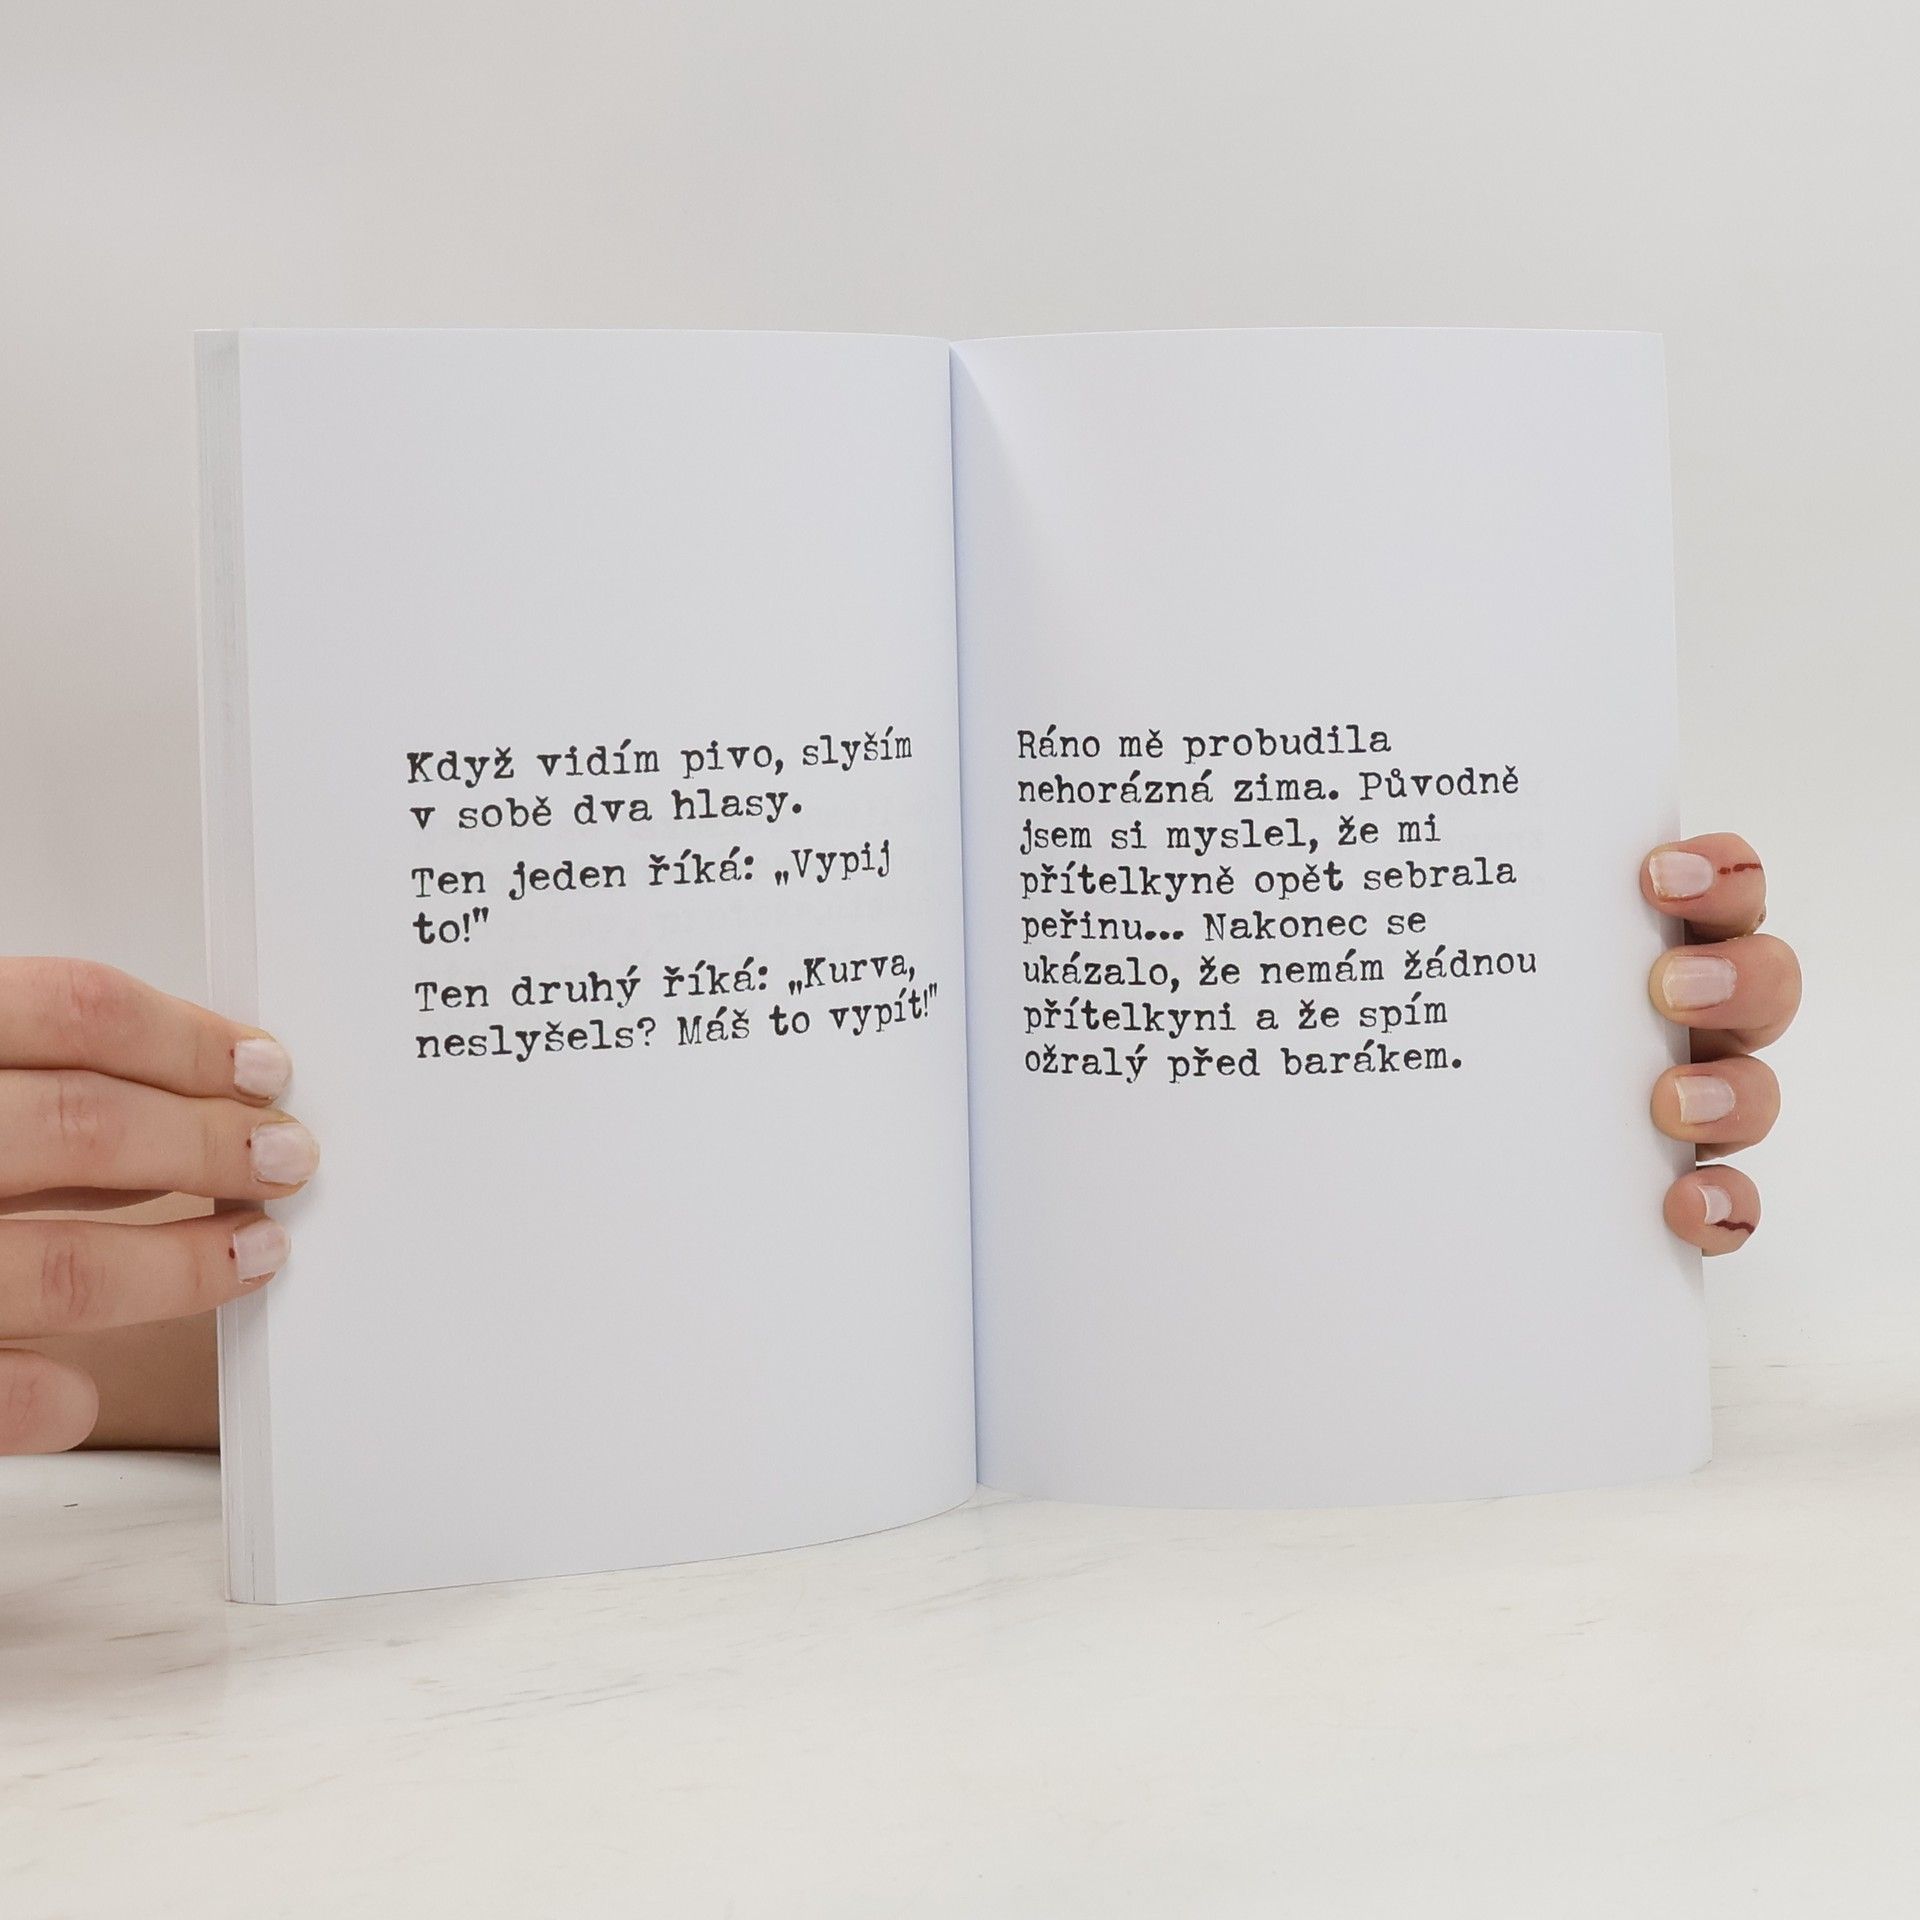 Když vidím pivo, slyším
v sobě dva hlasy.
Ten jeden říká: „Vypij
to!"
Ten druhý říká: „Kurva,
neslyšels? Máš to vypít!"
Ráno mě probudila
nehorázná zima. Původně
jsem si myslel, že mi
přítelkyně opět sebrala
peřinu... Nakonec se
ukázalo, že nemám žádnou
přítelkyni a že spím
ožralý před barákem.